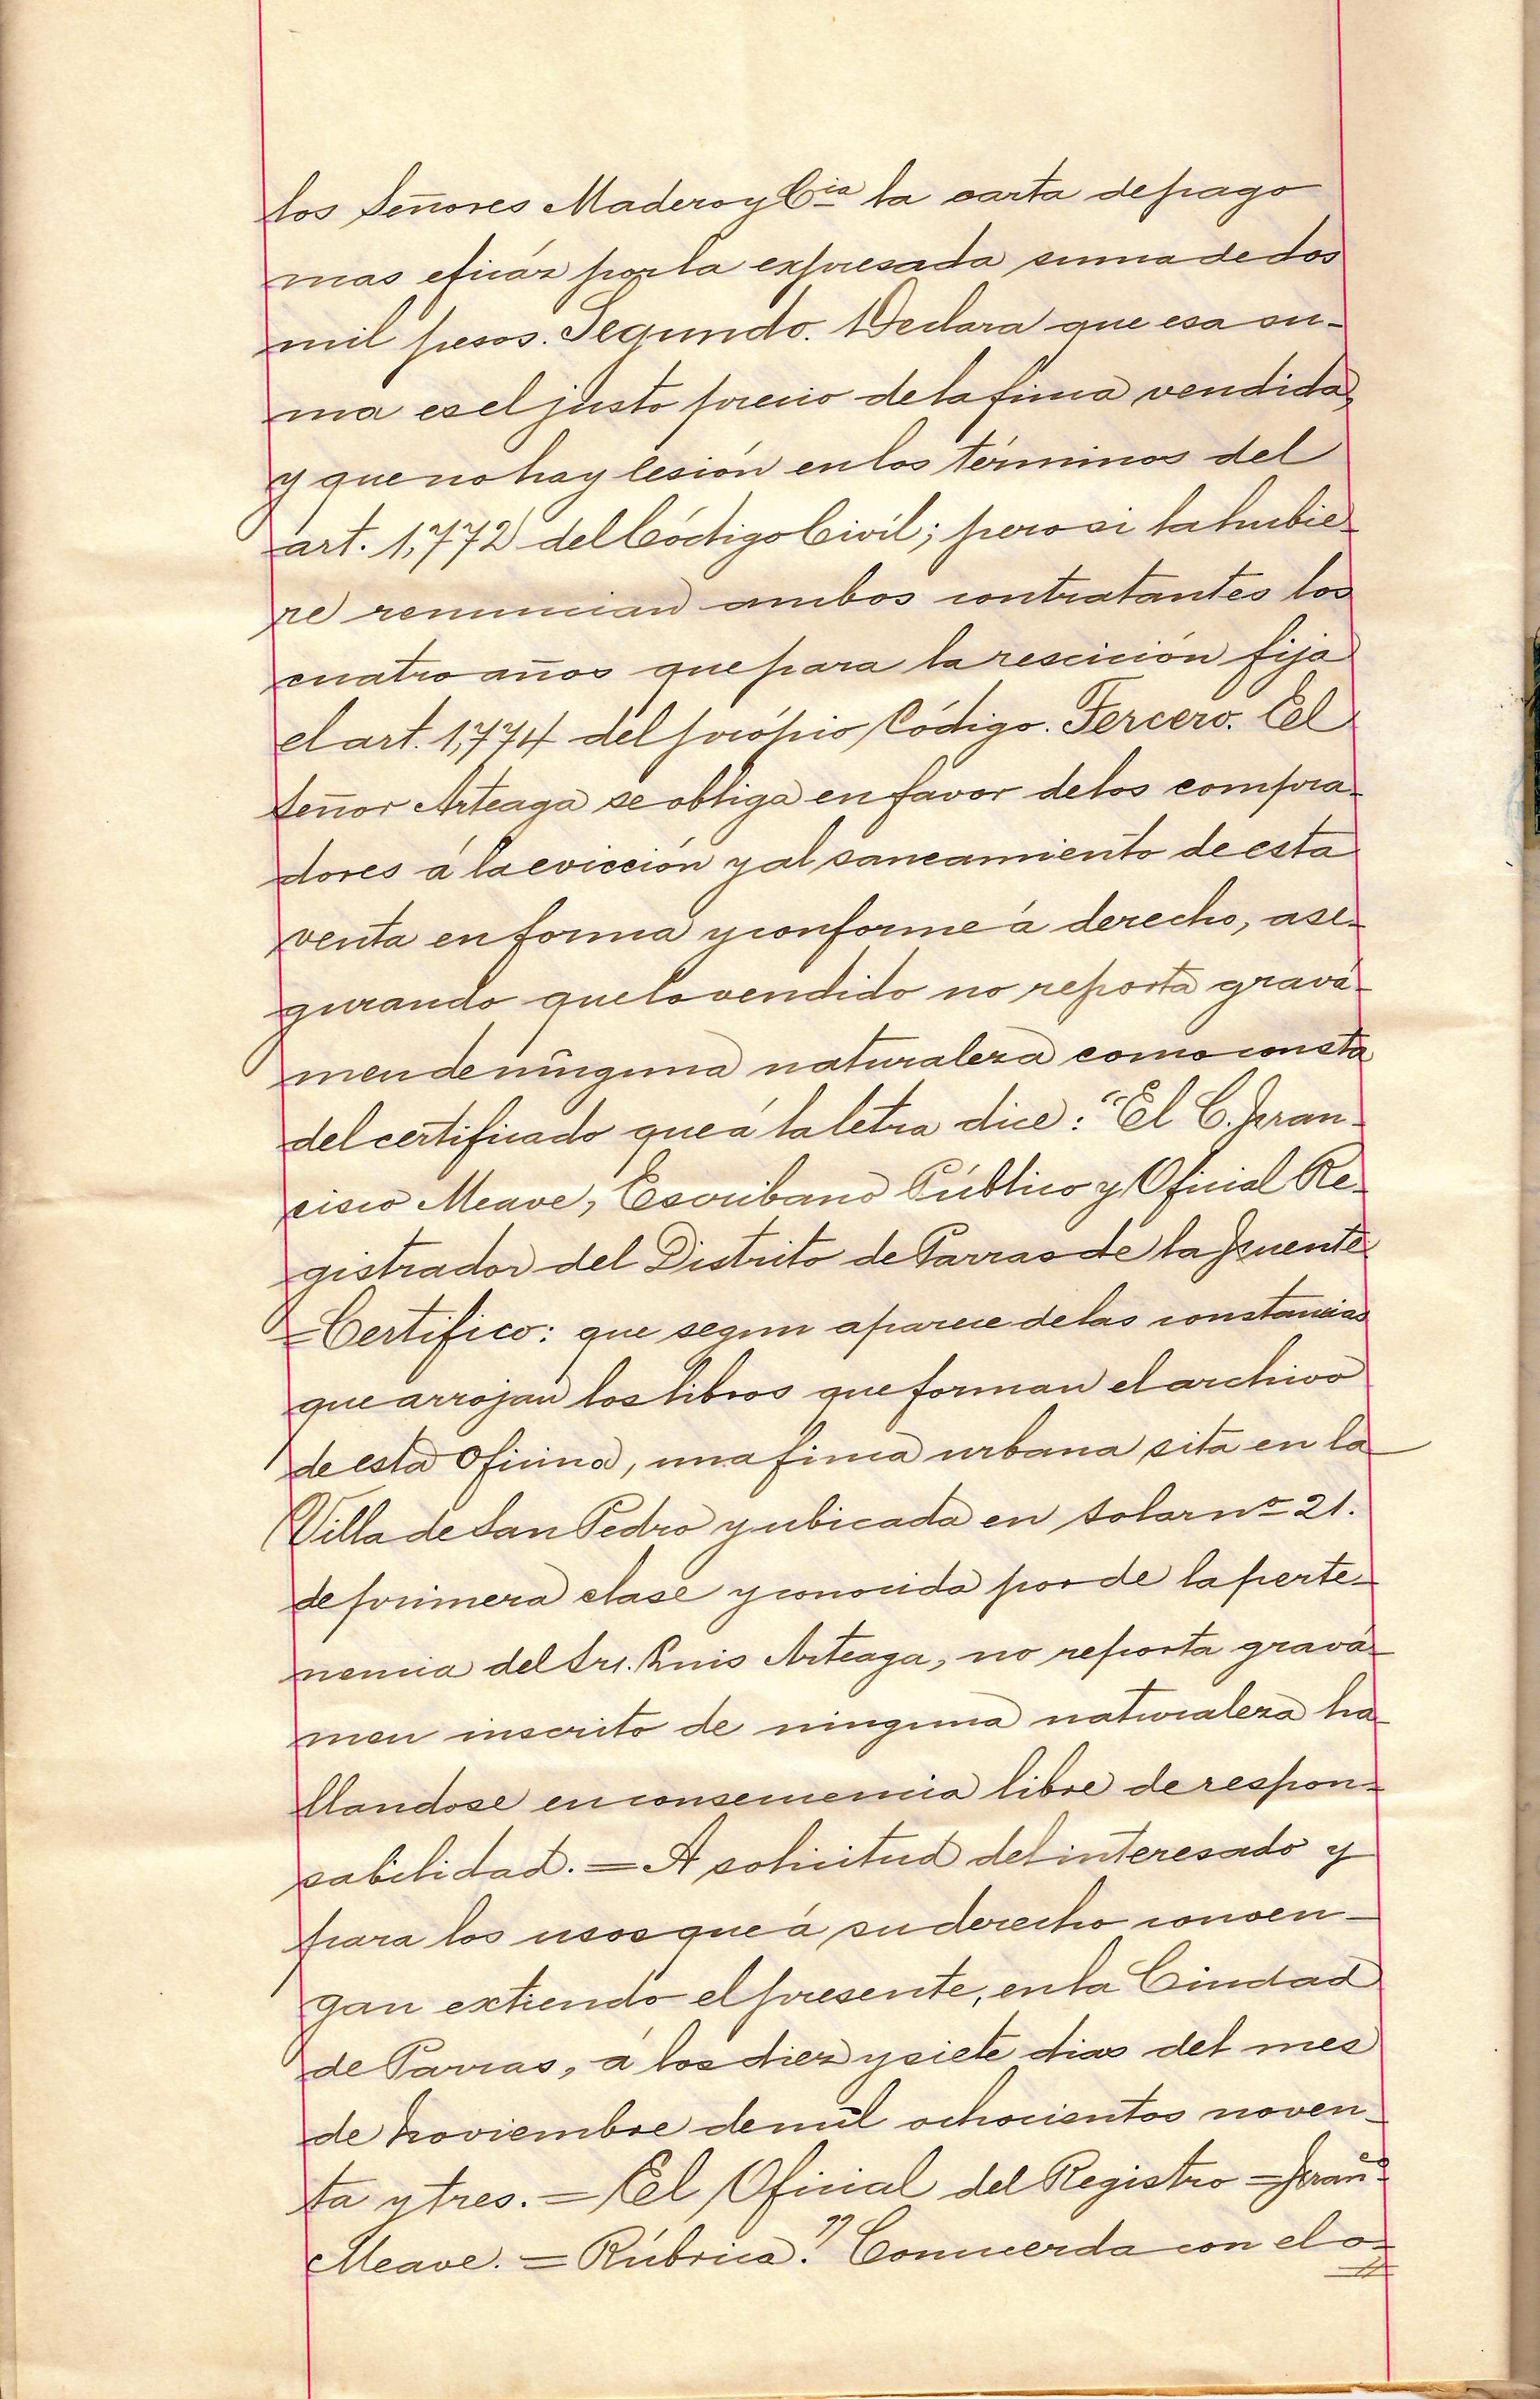 los Señores Madero y Cia la carta de pago
mas eficáz por la expresada suma de dos
mil pesos. Segundo. Declara que esa su-
ma es el justo precio de la finca vendida,
y que no hay lesión en los términos del
art. 1,772 del Código Civil; pero si la hubie-
re renuncian ambos contratantes los
cuatro años que para la rescición fija
el art. 1,774 del própio Código. Tercero. El
Señor Arteaga se obliga en favor de los compra-
dores á la evicción y al saneamiento de esta
venta en forma y conforme á derecho, ase-
gurando que lo vendido no reporta gravá-
men de ninguna naturaleza como consta
del certificado que á la letra dice: "El C. Fran-
cisco Meave, Escribano Público y Oficial Re-
gistrador del Distrito de Parras de la Fuente
=Certifico: que segun aparece de las constancias
que arrojan los libros que forman el archivo
de esta Oficina, una finca urbana sita en la
Villa de San Pedro y ubicada en solar nº 21.
de primera clase y conocida por de la perte-
nencia del Sr. Luis Arteaga, no reporta gravá-
men inscrito de ninguna naturaleza ha-
llandose en consecuencia libre de respon-
sabilidad. = A solicitud del interesado y
para los usos que á su derecho conven-
gan extiendo el presente, en la Ciudad
de Parras, á los diez y siete dias del mes
de Noviembre de mil ochocientos noven-
ta y tres. = El Oficial del Registro = Franco
Meave. = Rúbrica." Concuerda con el o-